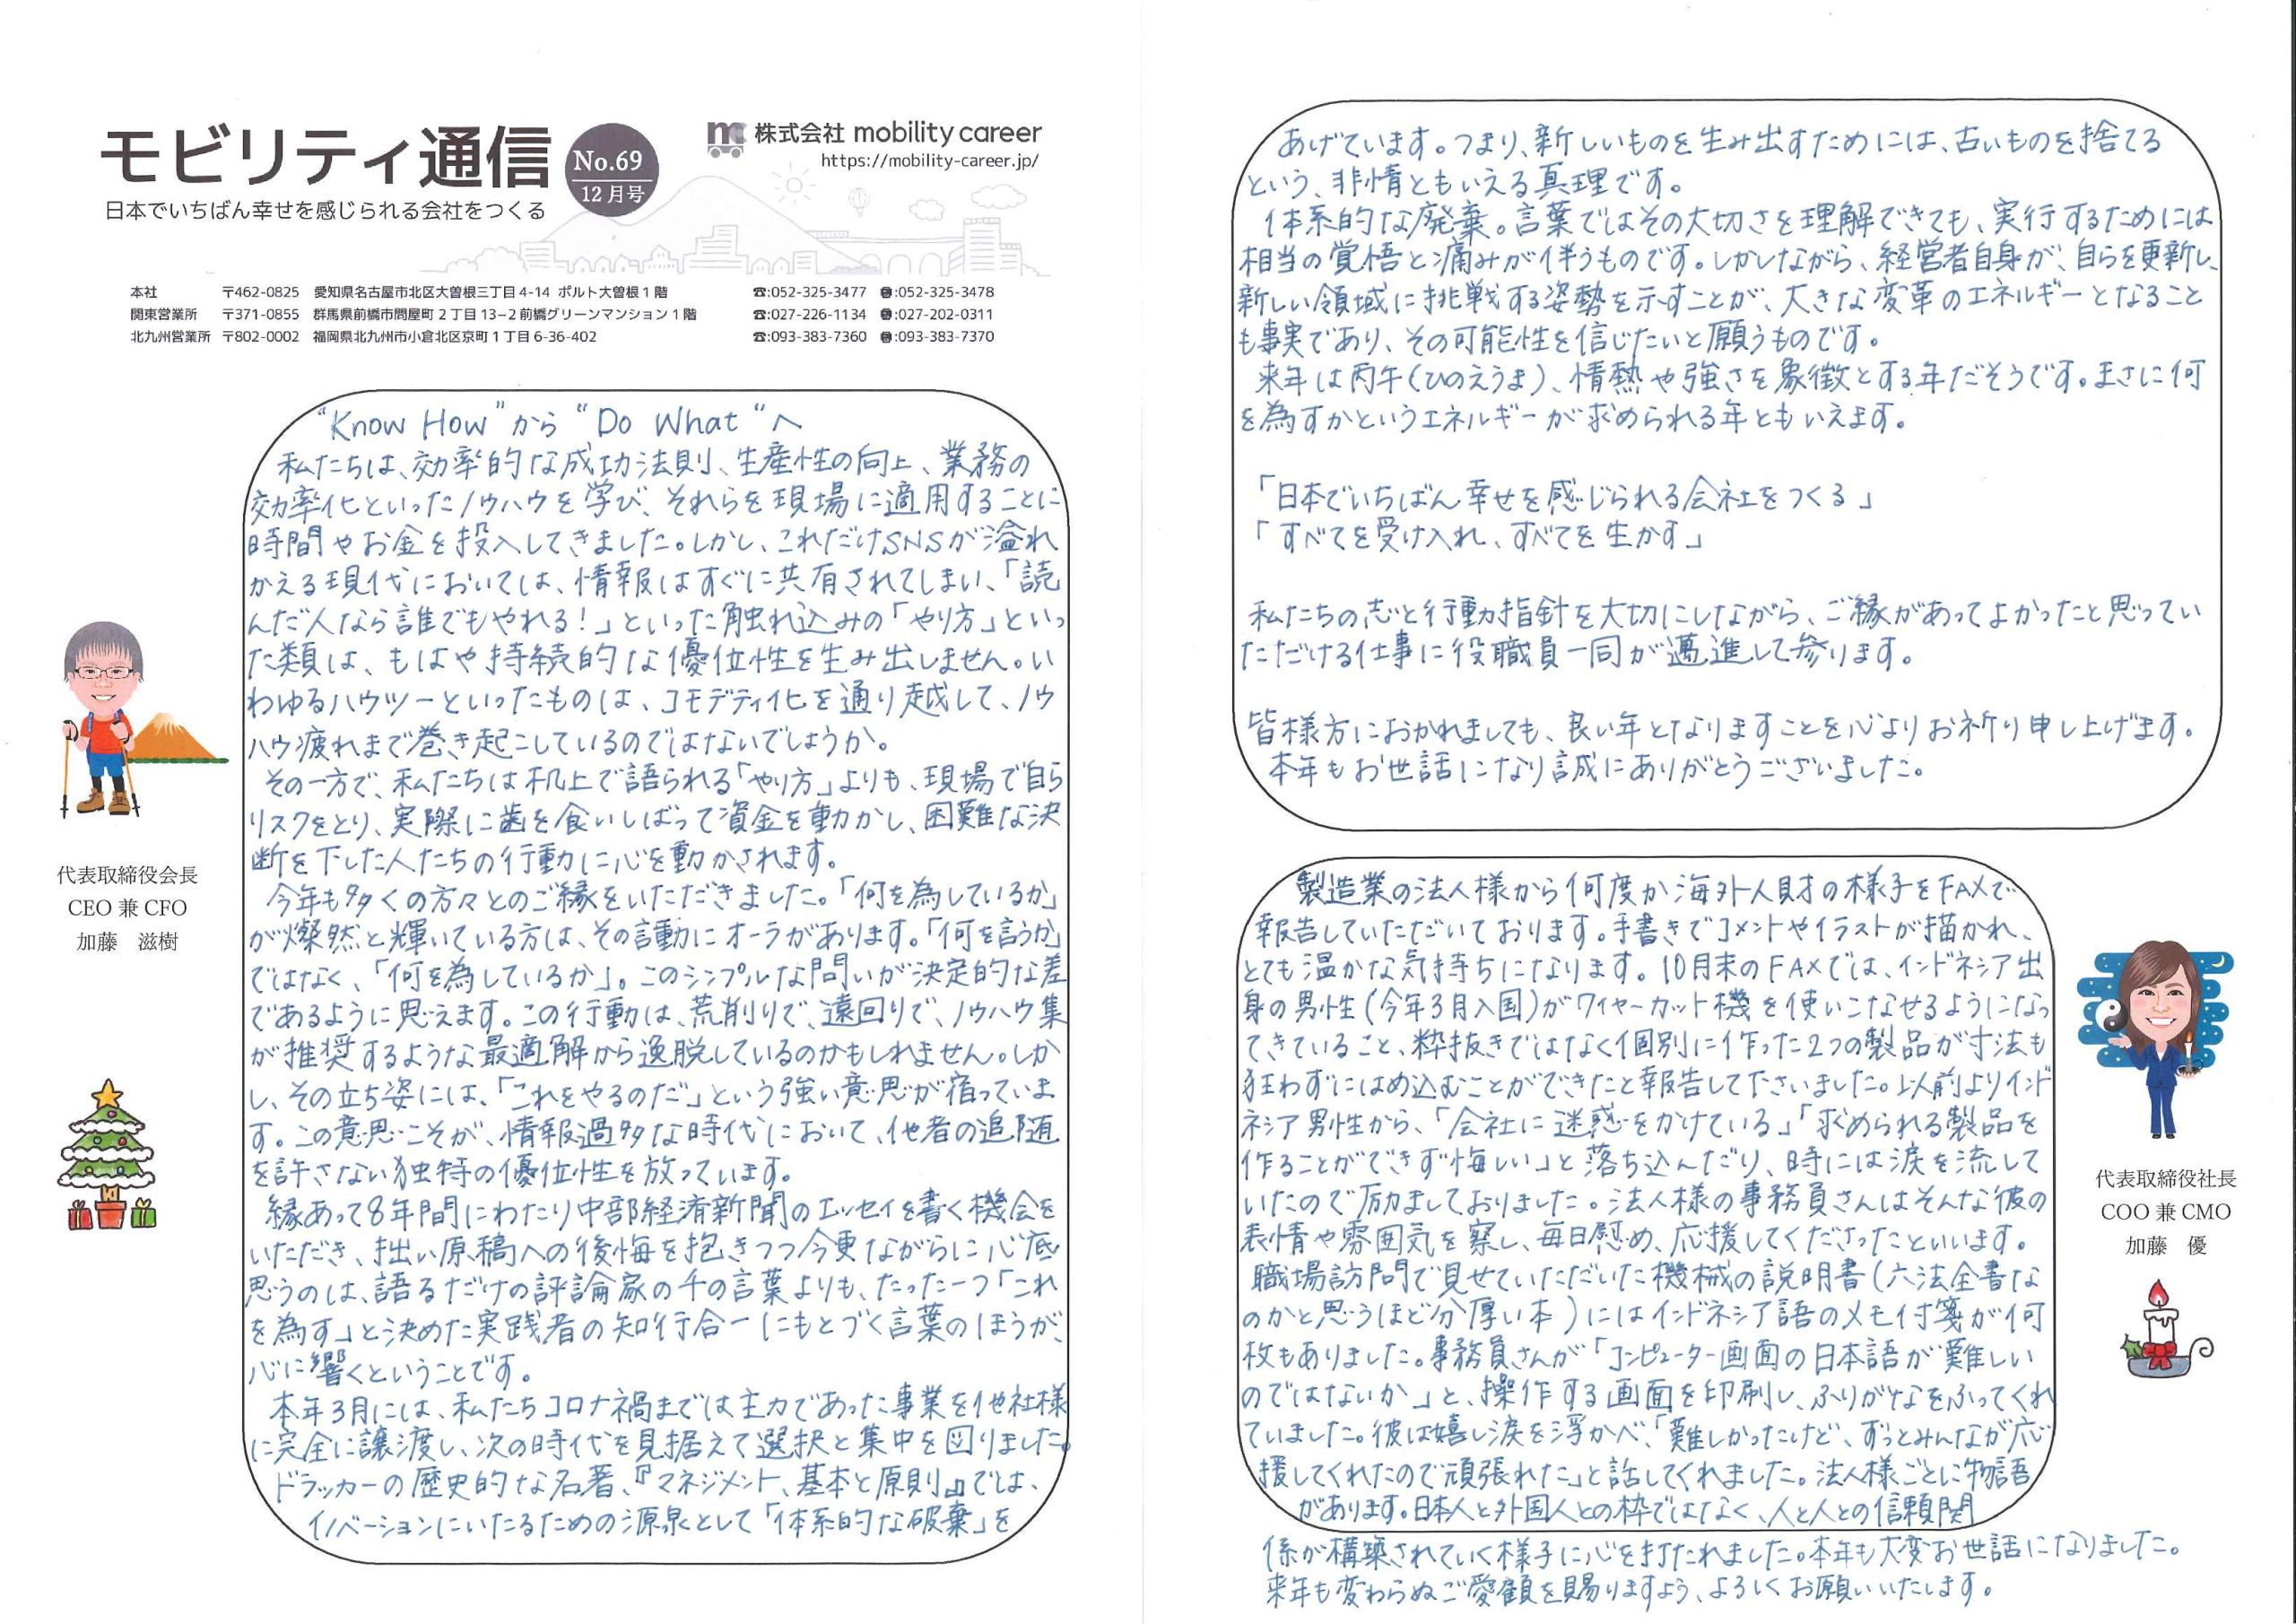 モビリティ通信
No.69
12月号
日本でいちばん幸せを感じられる会社をつくる
mc 株式会社 mobility career
https://mobility-career.jp/
本社 〒462-0825 愛知県名古屋市北区大曽根三丁目4-14 ポルト大曽根1階 ☎:052-325-3477 :052-325-3478
関東営業所 〒371-0855 群馬県前橋市問屋町2丁目13-2前橋グリーンマンション1階 ☎:027-226-1134 :027-202-0311
北九州営業所 〒802-0002 福岡県北九州市小倉北区京町1丁目6-36-402 ☎:093-383-7360 :093-383-7370
"Know How"から"Do What"へ
私たちは、効率的な成功法則、生産性の向上、業務の
効率化といったノウハウを学び、それらを現場に適用することに
時間やお金を投入してきました。しかし、これだけSNSが溢れ
かえる現代においては、情報はすぐに共有されてしまい、「読
んだ人なら誰でもやれる!」といった触れ込みの「やり方」といっ
た類は、もはや持続的な優位性を生み出しません。い
わゆるハウツーといったものは、コモデティ化を通り越して、ノウ
ハウ疲れまで巻き起こしているのではないでしょうか。
その一方で、私たちは机上で語られる「やり方」よりも、現場で自ら
リスクをとり、実際に歯を食いしばって資金を動かし、困難な決
断を下した人たちの行動に心を動かされます。
今年も多くの方々とのご縁をいただきました。「何を為しているか」
が燦然と輝いている方は、その言動にオーラがあります。「何を言うか」
ではなく、「何を為しているか」。このシンプルな問いが決定的な差
であるように思えます。この行動は、荒削りで、遠回りで、ノウハウ集
が推奨するような最適解から逸脱しているのかもしれません。しか
し、その立ち姿には、「これをやるのだ」という強い意思が宿っていま
す。この意思こそが、情報過多な時代において、他者の追随
を許さない独特の優位性を放っています。
縁あって8年間にわたり中部経済新聞のエッセイを書く機会を
いただき、拙い原稿への後悔を抱きつつ今更ながらに心底
思うのは、語るだけの評論家の千の言葉よりも、たった一つ「これ
を為す」と決めた実践者の知行合一にもとづく言葉のほうが、
心に響くということです。
本年3月には、私たちコロナ禍までは主力であった事業を他社様
に完全に譲渡し、次の時代を見据えて選択と集中を図りました。
ドラッカーの歴史的な名著、『マネジメント、基本と原則』では、
イノベーションにいたるための源泉として「体系的な破棄」を
代表取締役会長
CEO 兼 CFO
加藤 滋樹
あげています。つまり、新しいものを生み出すためには、古いものを捨てる
という、非情ともいえる真理です。
体系的な廃棄。言葉ではその大切さを理解できても、実行するためには
相当の覚悟と痛みが伴うものです。しかしながら、経営者自身が、自らを更新し、
新しい領域に挑戦する姿勢を示すことが、大きな変革のエネルギーとなること
も事実であり、その可能性を信じたいと願うものです。
来年は丙午(ひのえうま)、情熱や強さを象徴とする年だそうです。まさに何
を為すかというエネルギーが求められる年ともいえます。
「日本でいちばん幸せを感じられる会社をつくる」
「すべてを受け入れ、すべてを生かす」
私たちの志と行動指針を大切にしながら、ご縁があってよかったと思ってい
ただける仕事に役職員一同が邁進して参ります。
皆様方におかれましても、良い年となりますことを心よりお祈り申し上げます。
本年もお世話になり誠にありがとうございました。
製造業の法人様から何度か海外人財の様子をFAXで
報告していただいております。手書きでコメントやイラストが描かれ、
とても温かな気持ちになります。10月末のFAXでは、インドネシア出
身の男性(今年3月入国)がワイヤーカット機を使いこなせるようになっ
てきていること、粋抜きではなく個別に作った2つの製品が寸法も
狂わずにはめ込むことができたと報告して下さいました。以前よりインド
ネシア男性から、「会社に迷惑をかけている」「求められる製品を
作ることができず悔しい」と落ち込んだり、時には涙を流して
いたので励ましておりました。法人様の事務員さんはそんな彼の
表情や雰囲気を察し、毎日慰め、応援してくださったといいます。
職場訪問で見せていただいた機械の説明書(六法全書な
のかと思うほど分厚い本)にはインドネシア語のメモ付箋が何
枚もありました。事務員さんが「コンピューター画面の日本語が難しい
のではないか」と、操作する画面を印刷し、ふりがなをふってくれ
ていました。彼は嬉し涙を浮かべ、「難しかったけど、ずっとみんなが応
援してくれたので頑張れた」と話してくれました。法人様ごとに物語
があります。日本人と外国人との枠ではなく、人と人との信頼関
係が構築されていく様子に心を打たれました。本年も大変お世話になりました。
来年も変わらぬご愛顧を賜りますよう、よろしくお願いいたします。
代表取締役社長
COO 兼 CMO
加藤 優